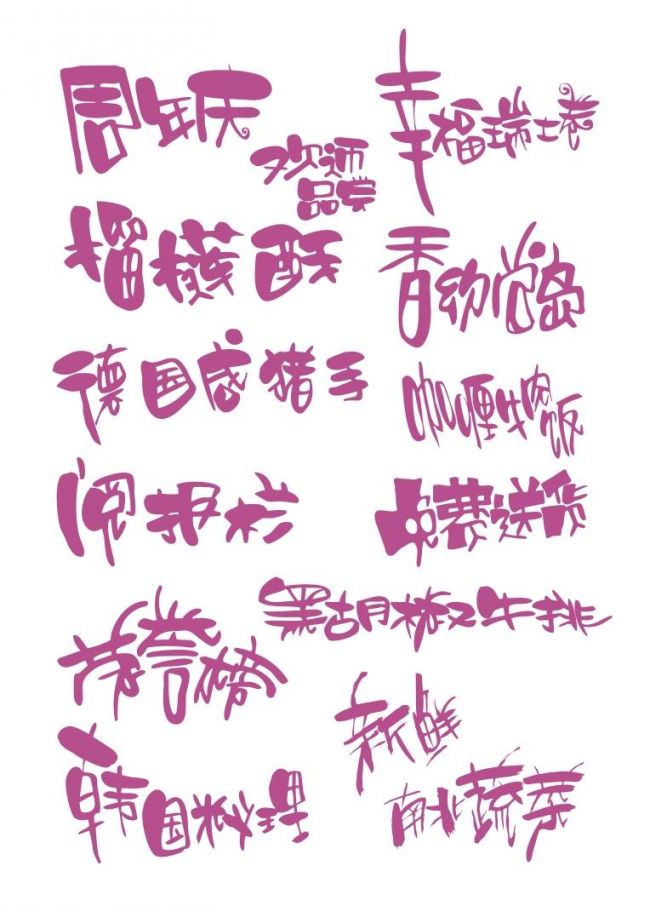 周年庆
幸福瑞士卷
欢迎
品尝
德国 猎手
咖喱牛肉饭
阅报栏
免费送货
黑胡椒牛排
荣誉榜
新鲜
韩国料理
南北蔬菜